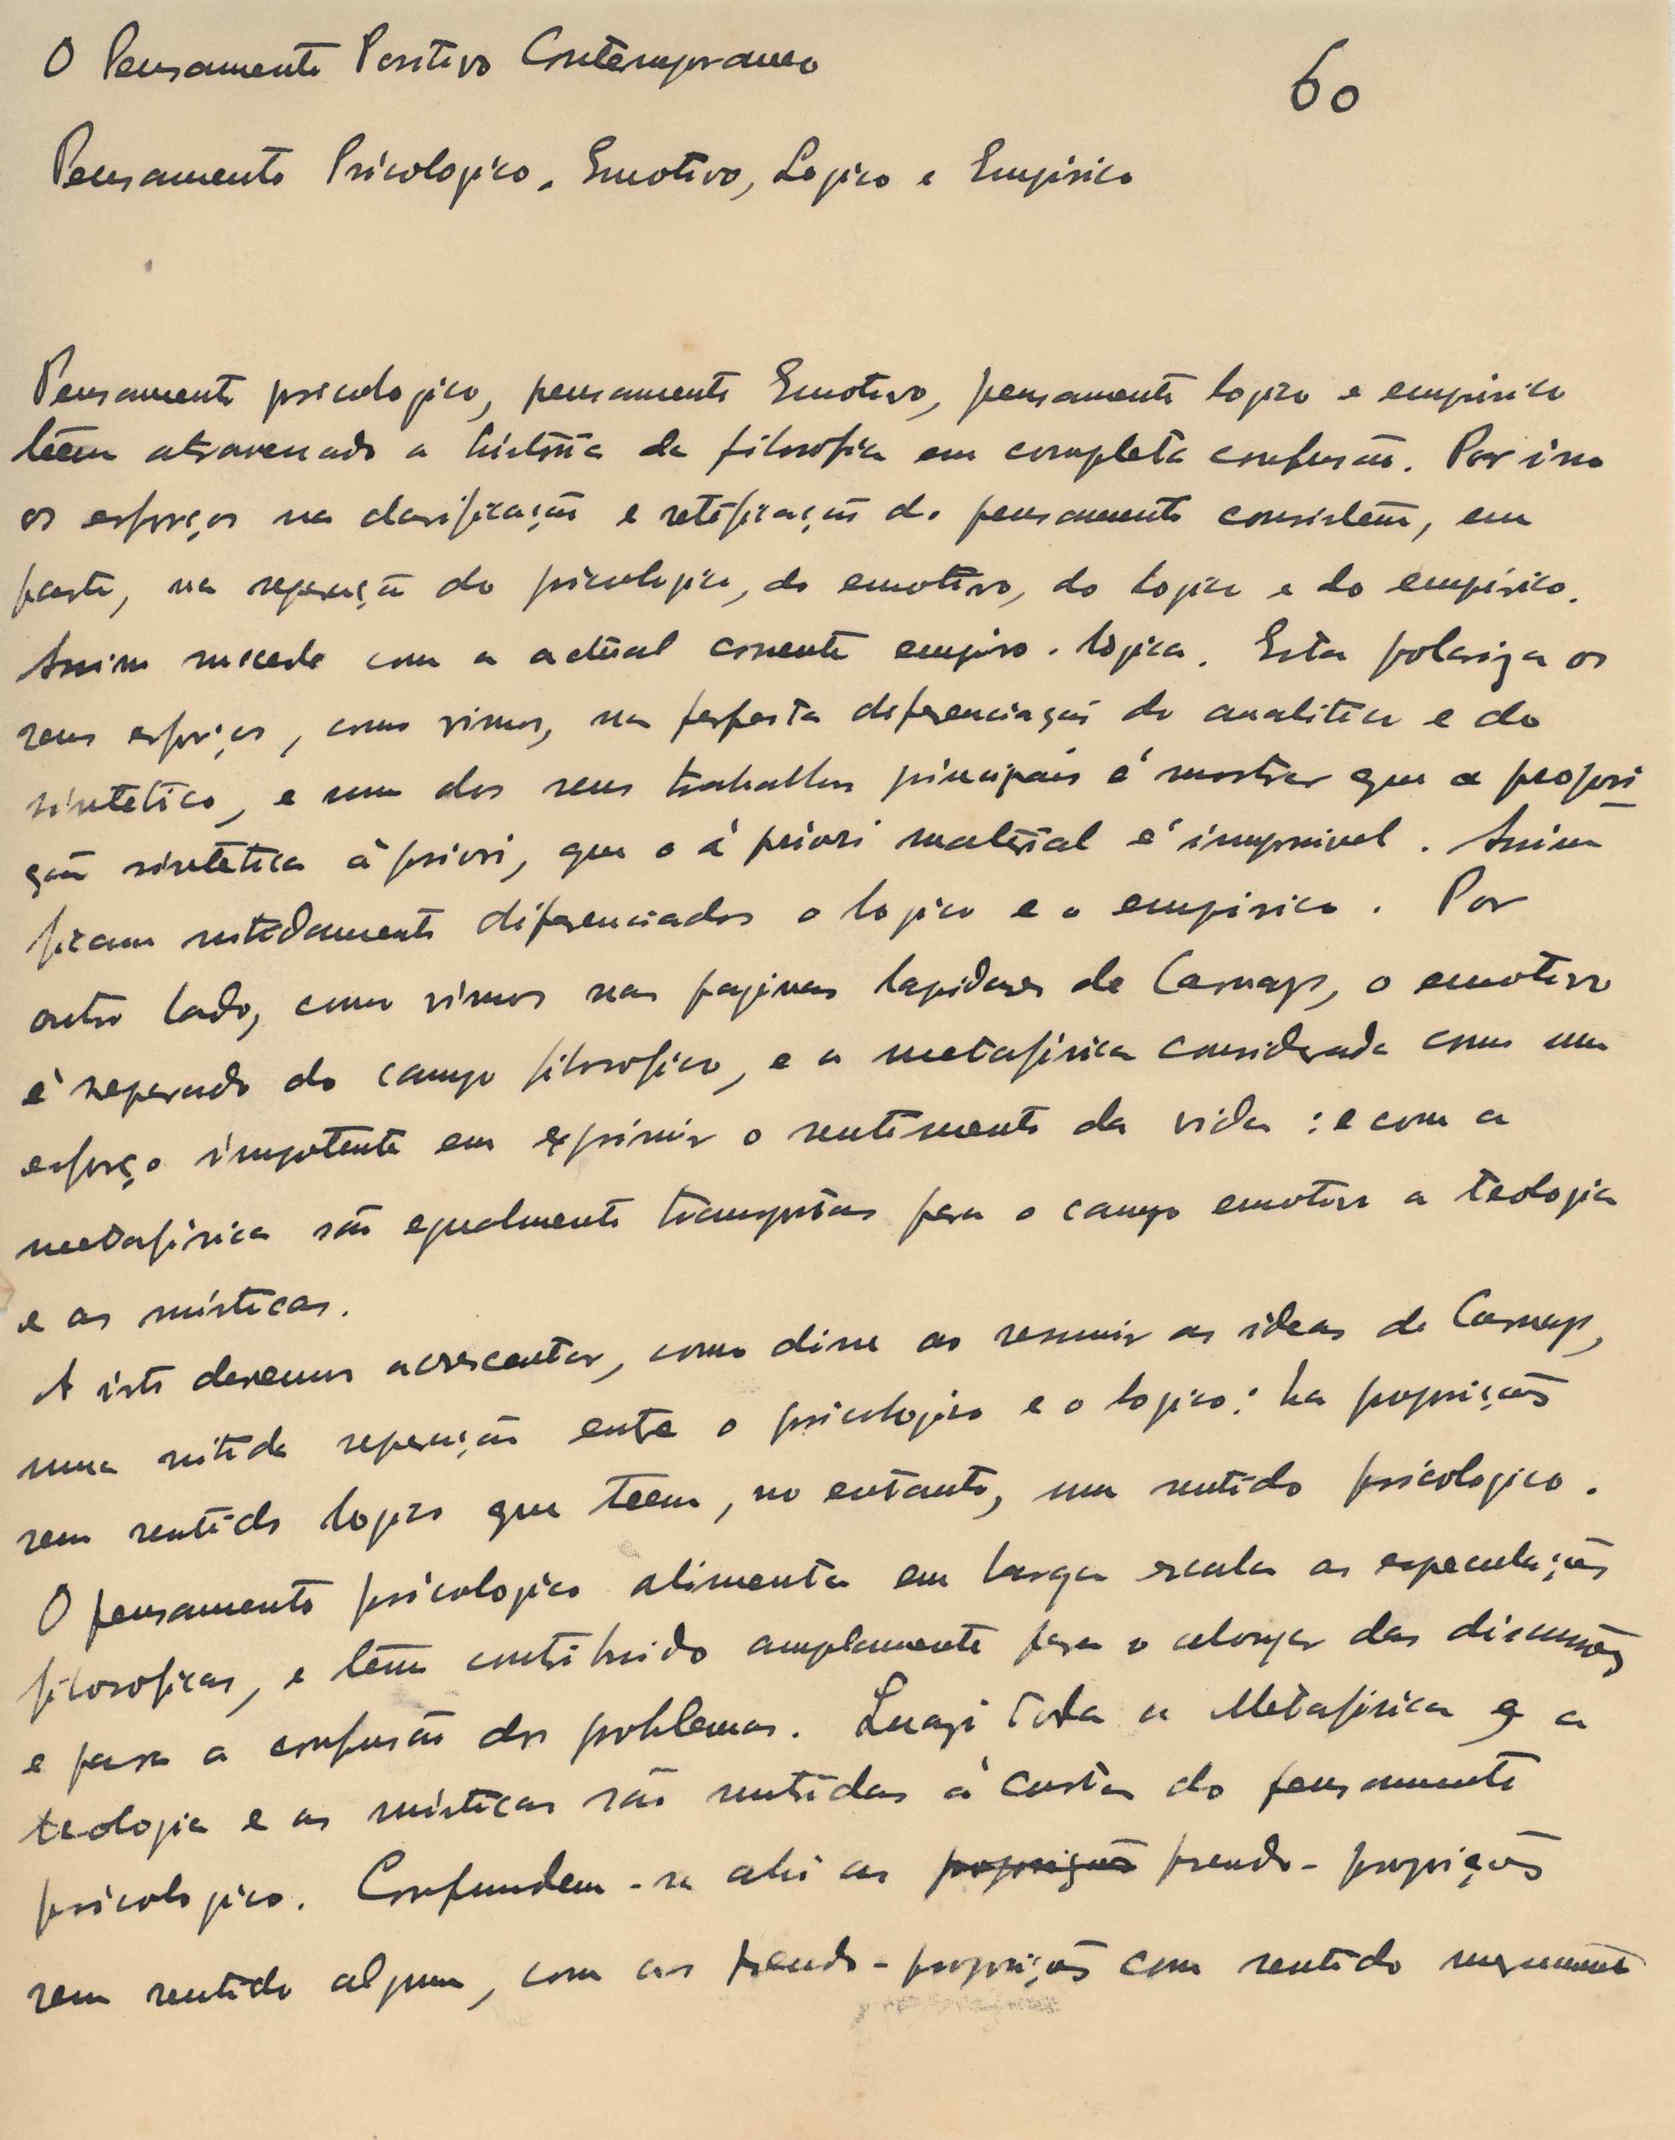 O Pensamento Positivo Contemporaneo
60
Pensamento Psicologico, Emotivo, Logico e Empirico
Pensamento psicologico, pensamento Emotivo, pensamento logico e empirico
têem atravessado a história da filosofia em completa confusão. Por isso
os esforços na clarificação e retificação do pensamento consistem, em
parte, na separação do psicologico, do emotivo, do logico e do empírico.
Assim sucede com a actual corrente empiro-logica. Esta polariza os
seus esforços, como vimos, na perfeita diferenciação do analitico e do
sintetico, e um dos seus trabalhos principais é mostrar que a proposi
ção sintética à priori, que o à priori material é impossivel. Assim
ficam nitidamente diferenciados o logico e o empirico. Por
outro lado, como vimos nas paginas lapidares de Carnap, o emotivo
é separado do campo filosofico, e a metafísica considerada como um
esforço impotente em exprimir o sentimento da vida: e com a
metafísica são egualmente transpostas para o campo emotivo a teologia
e as místicas.
A isto devemos acrescentar, como disse ao resumir as ideas de Carnap,
uma nitida separação entre o psicologico e o logico: ha proposições
sem sentido logico que teem, no entanto, um sentido psicologico.
O pensamento psicologico alimenta em larga escala as especulações
filosoficas, e têm contribuido amplamente para o alongar das discussões
e para a confusão dos problemas. Quasi toda a Metafísica e a
teologia e as místicas são nutridas à custa do pensamento
psicologico. Confundem-se ahi as proposições pseudo-proposições
sem sentido algum, com as pseudo-proposições com sentido meramente